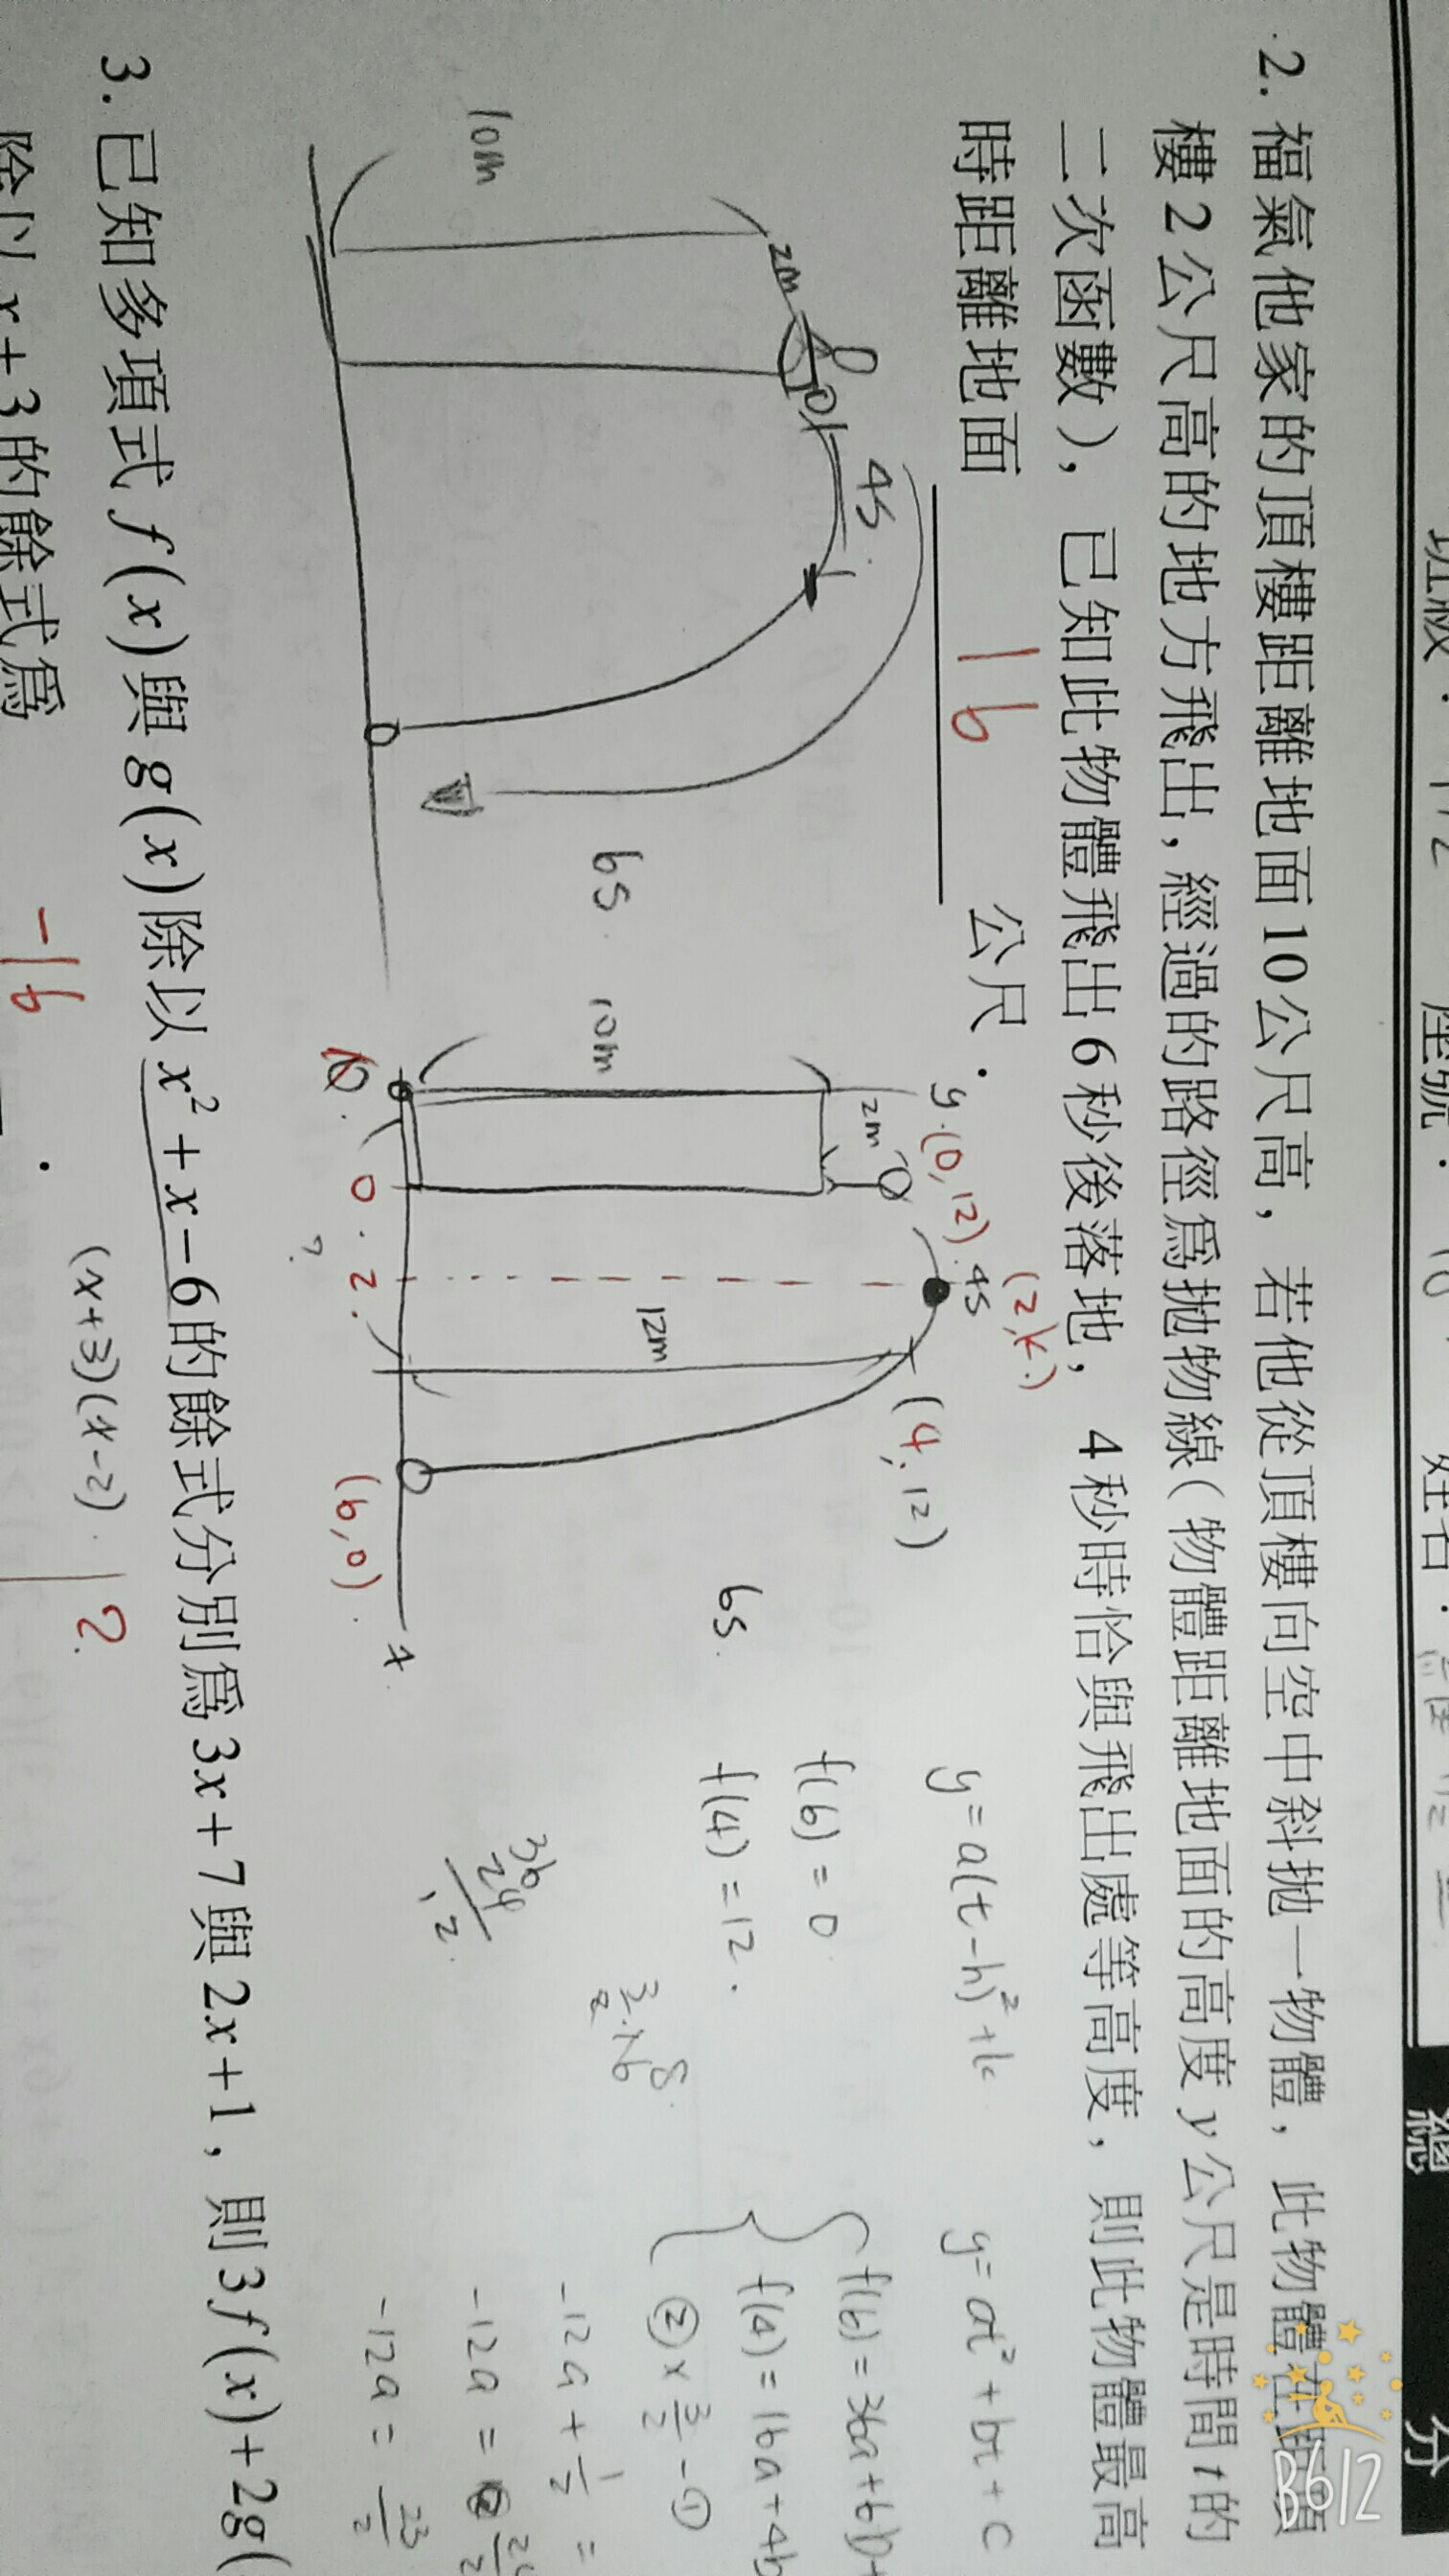 班級：112 座號： 姓名： 總 分
2. 福氣他家的頂樓距離地面10公尺高，若他從頂樓向空中斜拋一物體，此物體在距頂
樓2公尺高的地方飛出，經過的路徑爲拋物線（物體距離地面的高度y公尺是時間t的
二次函數），已知此物體飛出6秒後落地，4秒時恰與飛出處等高度，則此物體最高
時距離地面 16 公尺．
10m
2m
4s
6s
10m
2m
y
(0,12)
4s
(2,k)
(4,12)
12m
0
2
?
(6,0)
x
6s
y=a(t-h)²+k
f(6)=0
f(4)=12
36
24
y=at²+bt+c
f(6)=36a+6b+
f(4)=16a+4b
②×3/2-①
-12a+1/2=
-12a=
-12a=23/2
3. 已知多項式f(x)與g(x)除以x²+x-6的餘式分別爲3x+7與2x+1，則3f(x)+2g(
(x+3)(x-2)
除以x+3的餘式爲 -16 ．
?
B612